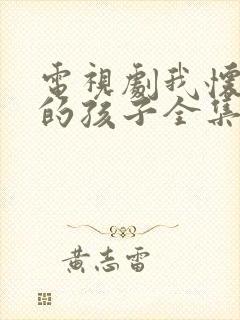 電視劇我懷
的孩子全集
黃志雷